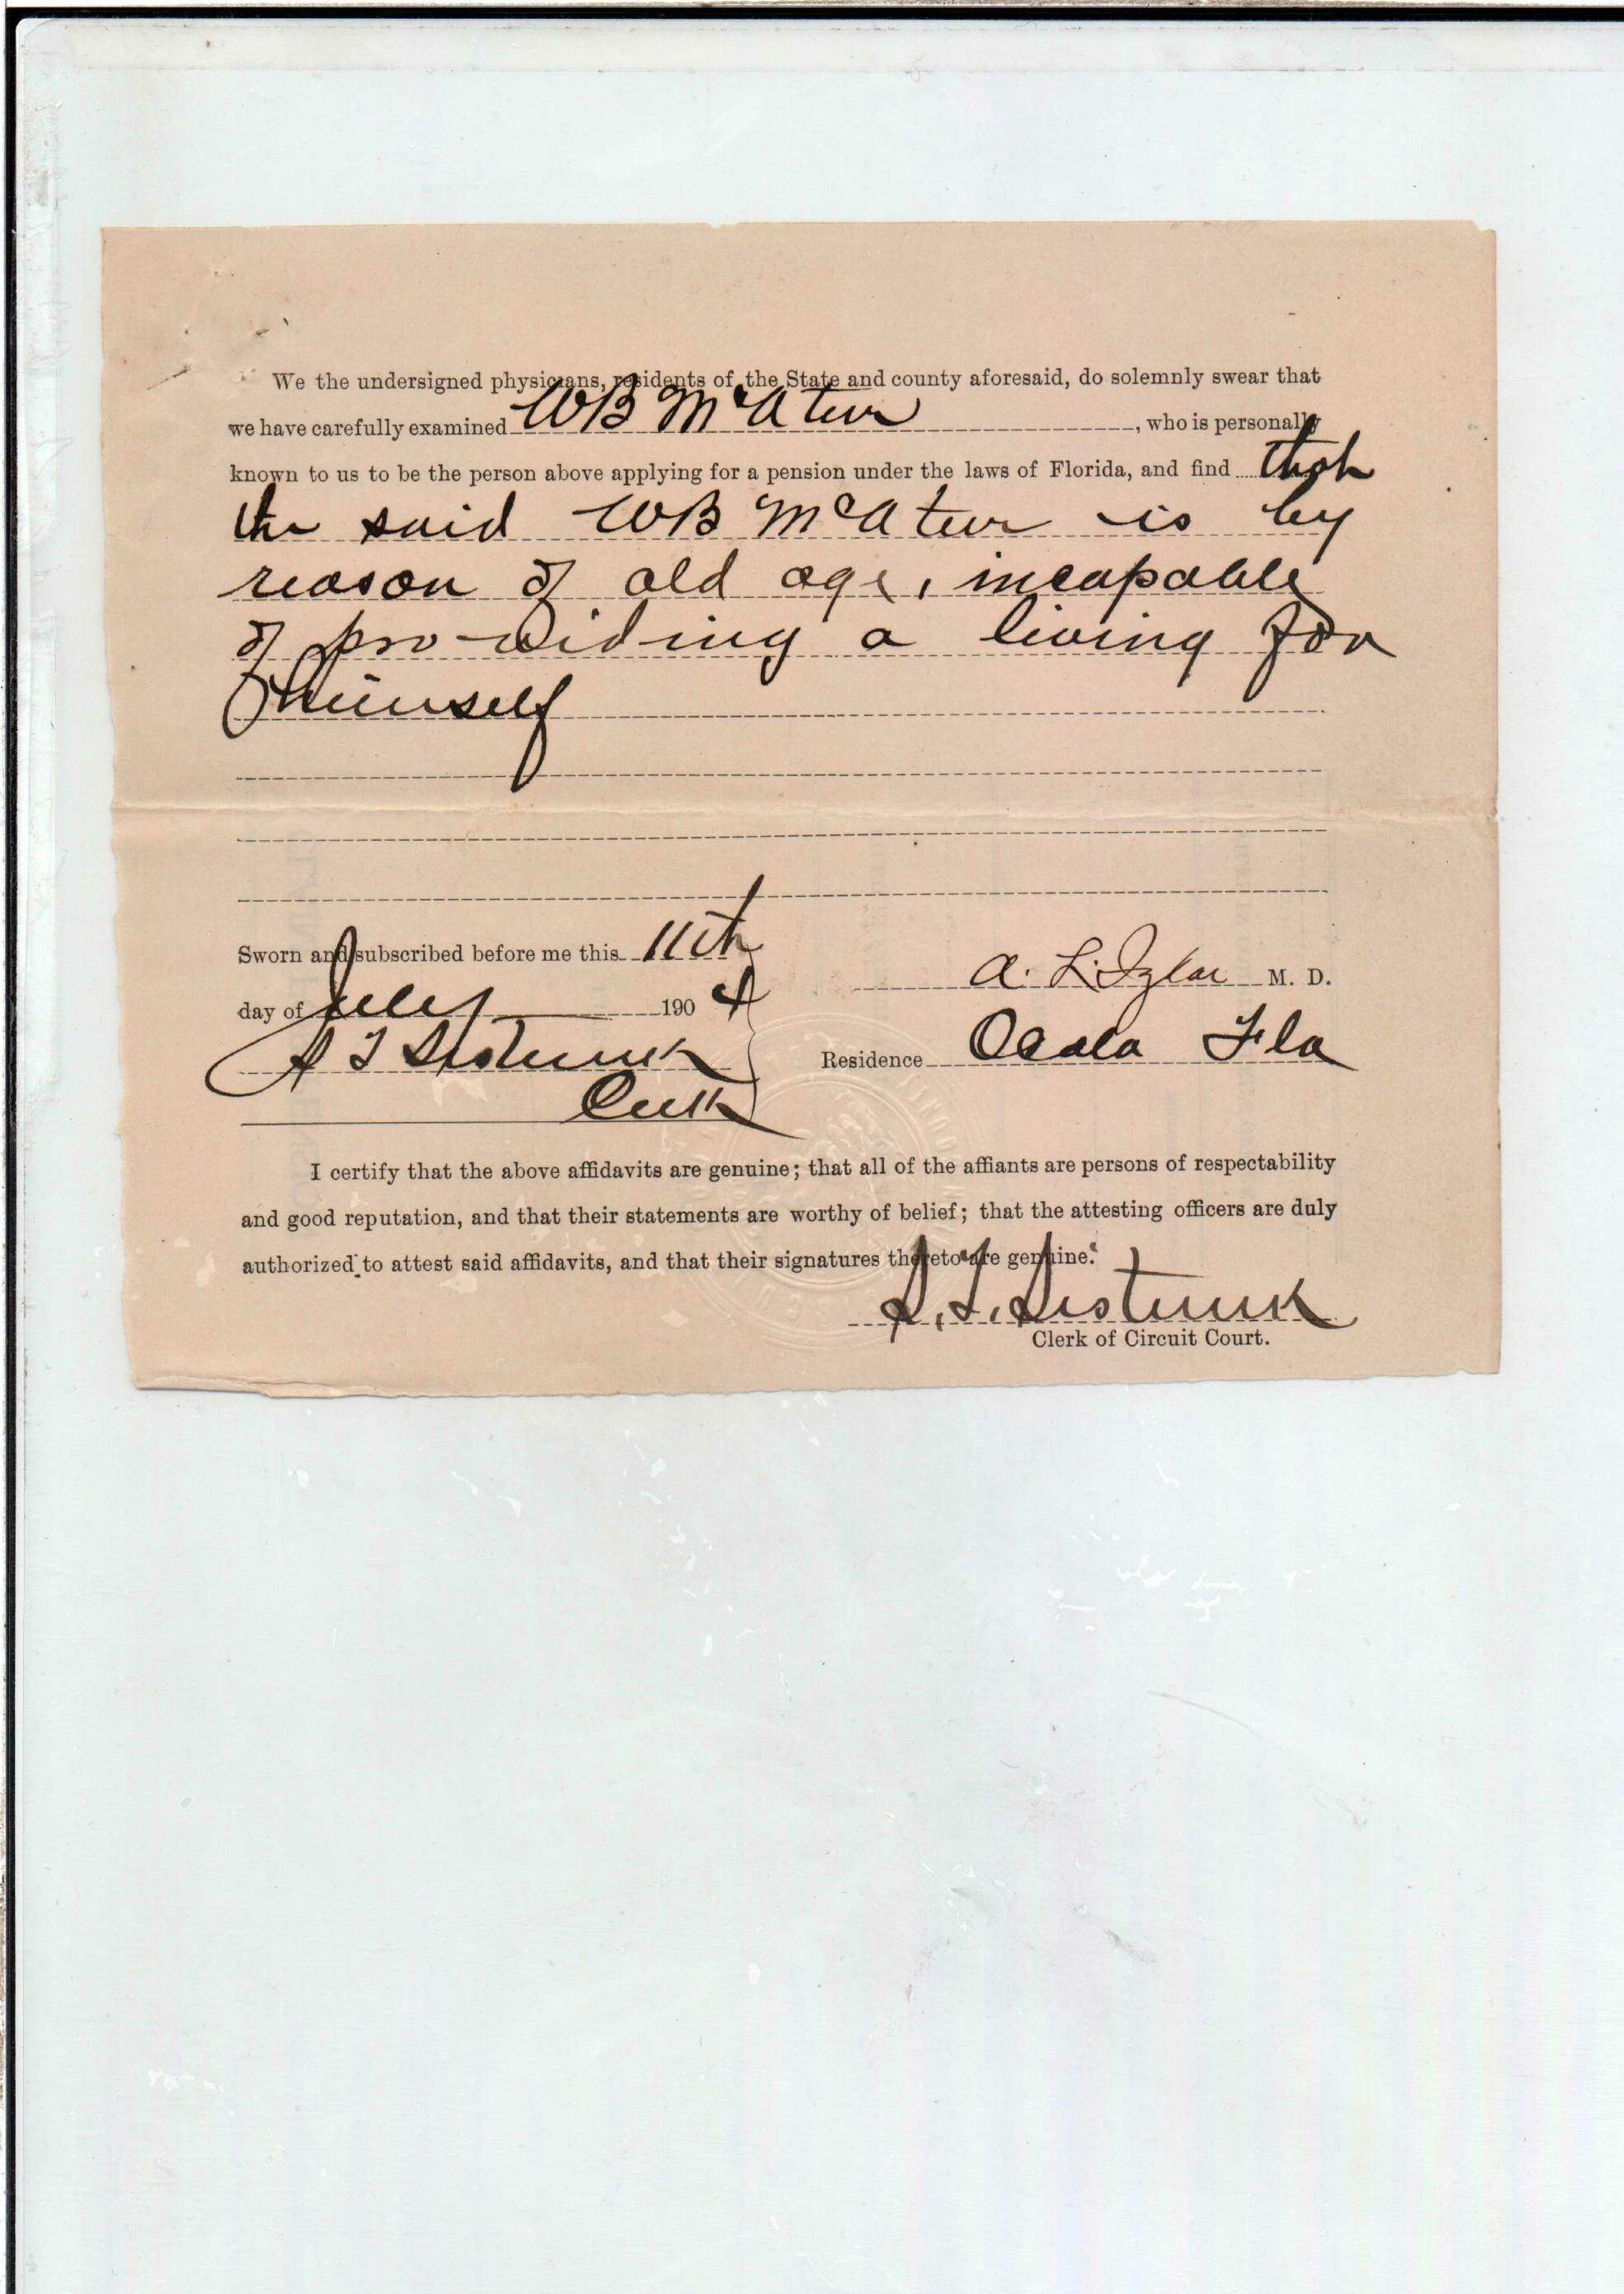 We the undersigned physicians, residents of the State and county aforesaid, do solemnly swear that
we have carefully examined W B McAteer, who is personally
known to us to be the person above applying for a pension under the laws of Florida, and find that
the said W B McAteer is by
reason of old age, incapable
of providing a living for
himself
Sworn and subscribed before me this 11th
day of July 1904
S T Sistrunk
Clerk
A. L. Izlar M. D.
Residence Ocala Fla
I certify that the above affidavits are genuine; that all of the affiants are persons of respectability
and good reputation, and that their statements are worthy of belief; that the attesting officers are duly
authorized to attest said affidavits, and that their signatures thereto are genuine.
S. T. Sistrunk
Clerk of Circuit Court.